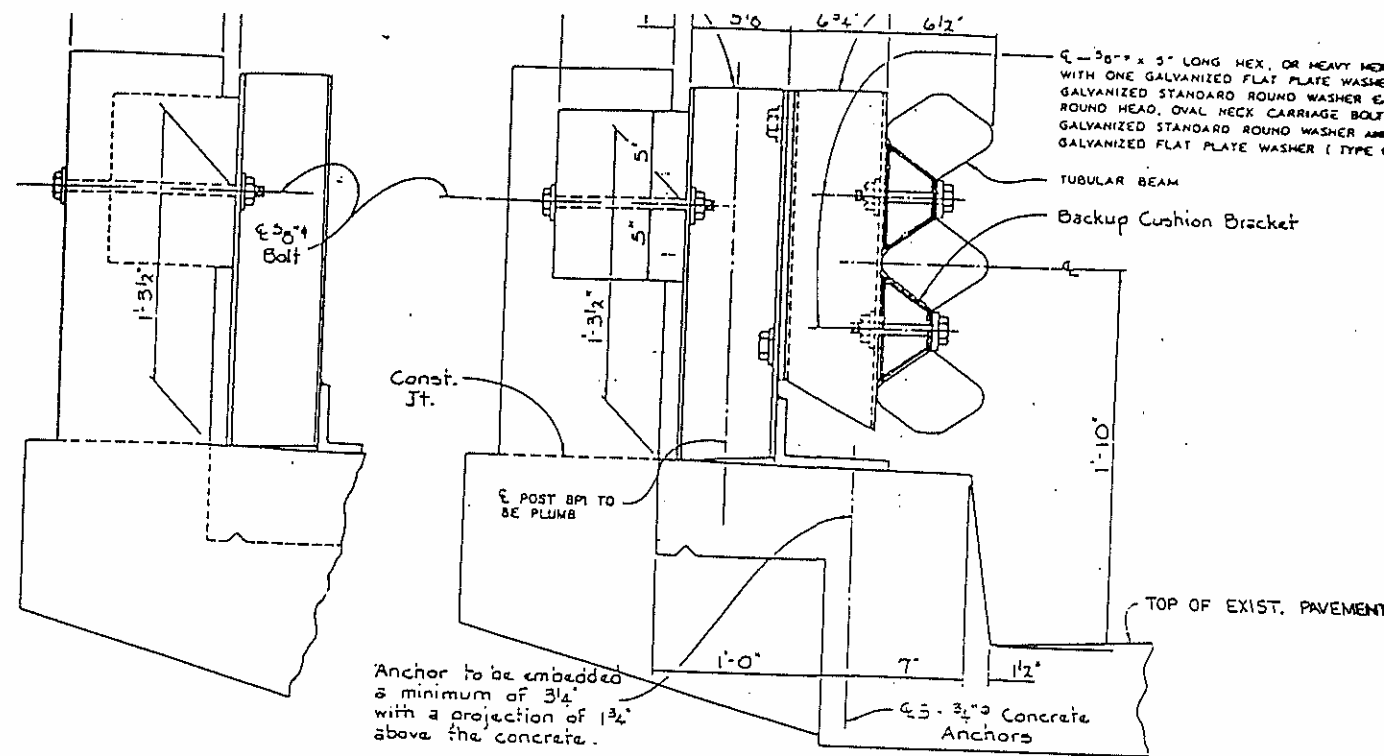 5⅛" 6¾" 6½"
℄ - ⅝"ø x 5" LONG HEX, OR HEAVY HEX
WITH ONE GALVANIZED FLAT PLATE WASHE
GALVANIZED STANDARD ROUND WASHER
ROUND HEAD, OVAL NECK CARRIAGE BOLT
GALVANIZED STANDARD ROUND WASHER AND
GALVANIZED FLAT PLATE WASHER ( TYPE
TUBULAR BEAM
Backup Cushion Bracket
℄
℄ ⅝"ø
Bolt
5"
5"
1'-3½"
1'-3½"
Const.
Jt.
1'-10"
℄ POST BPI TO
BE PLUMB
TOP OF EXIST. PAVEMENT
1'-0" 7" 1½"
Anchor to be embedded
a minimum of 3¼"
with a projection of 1¾"
above the concrete.
℄ 5 - ¾"ø Concrete
Anchors